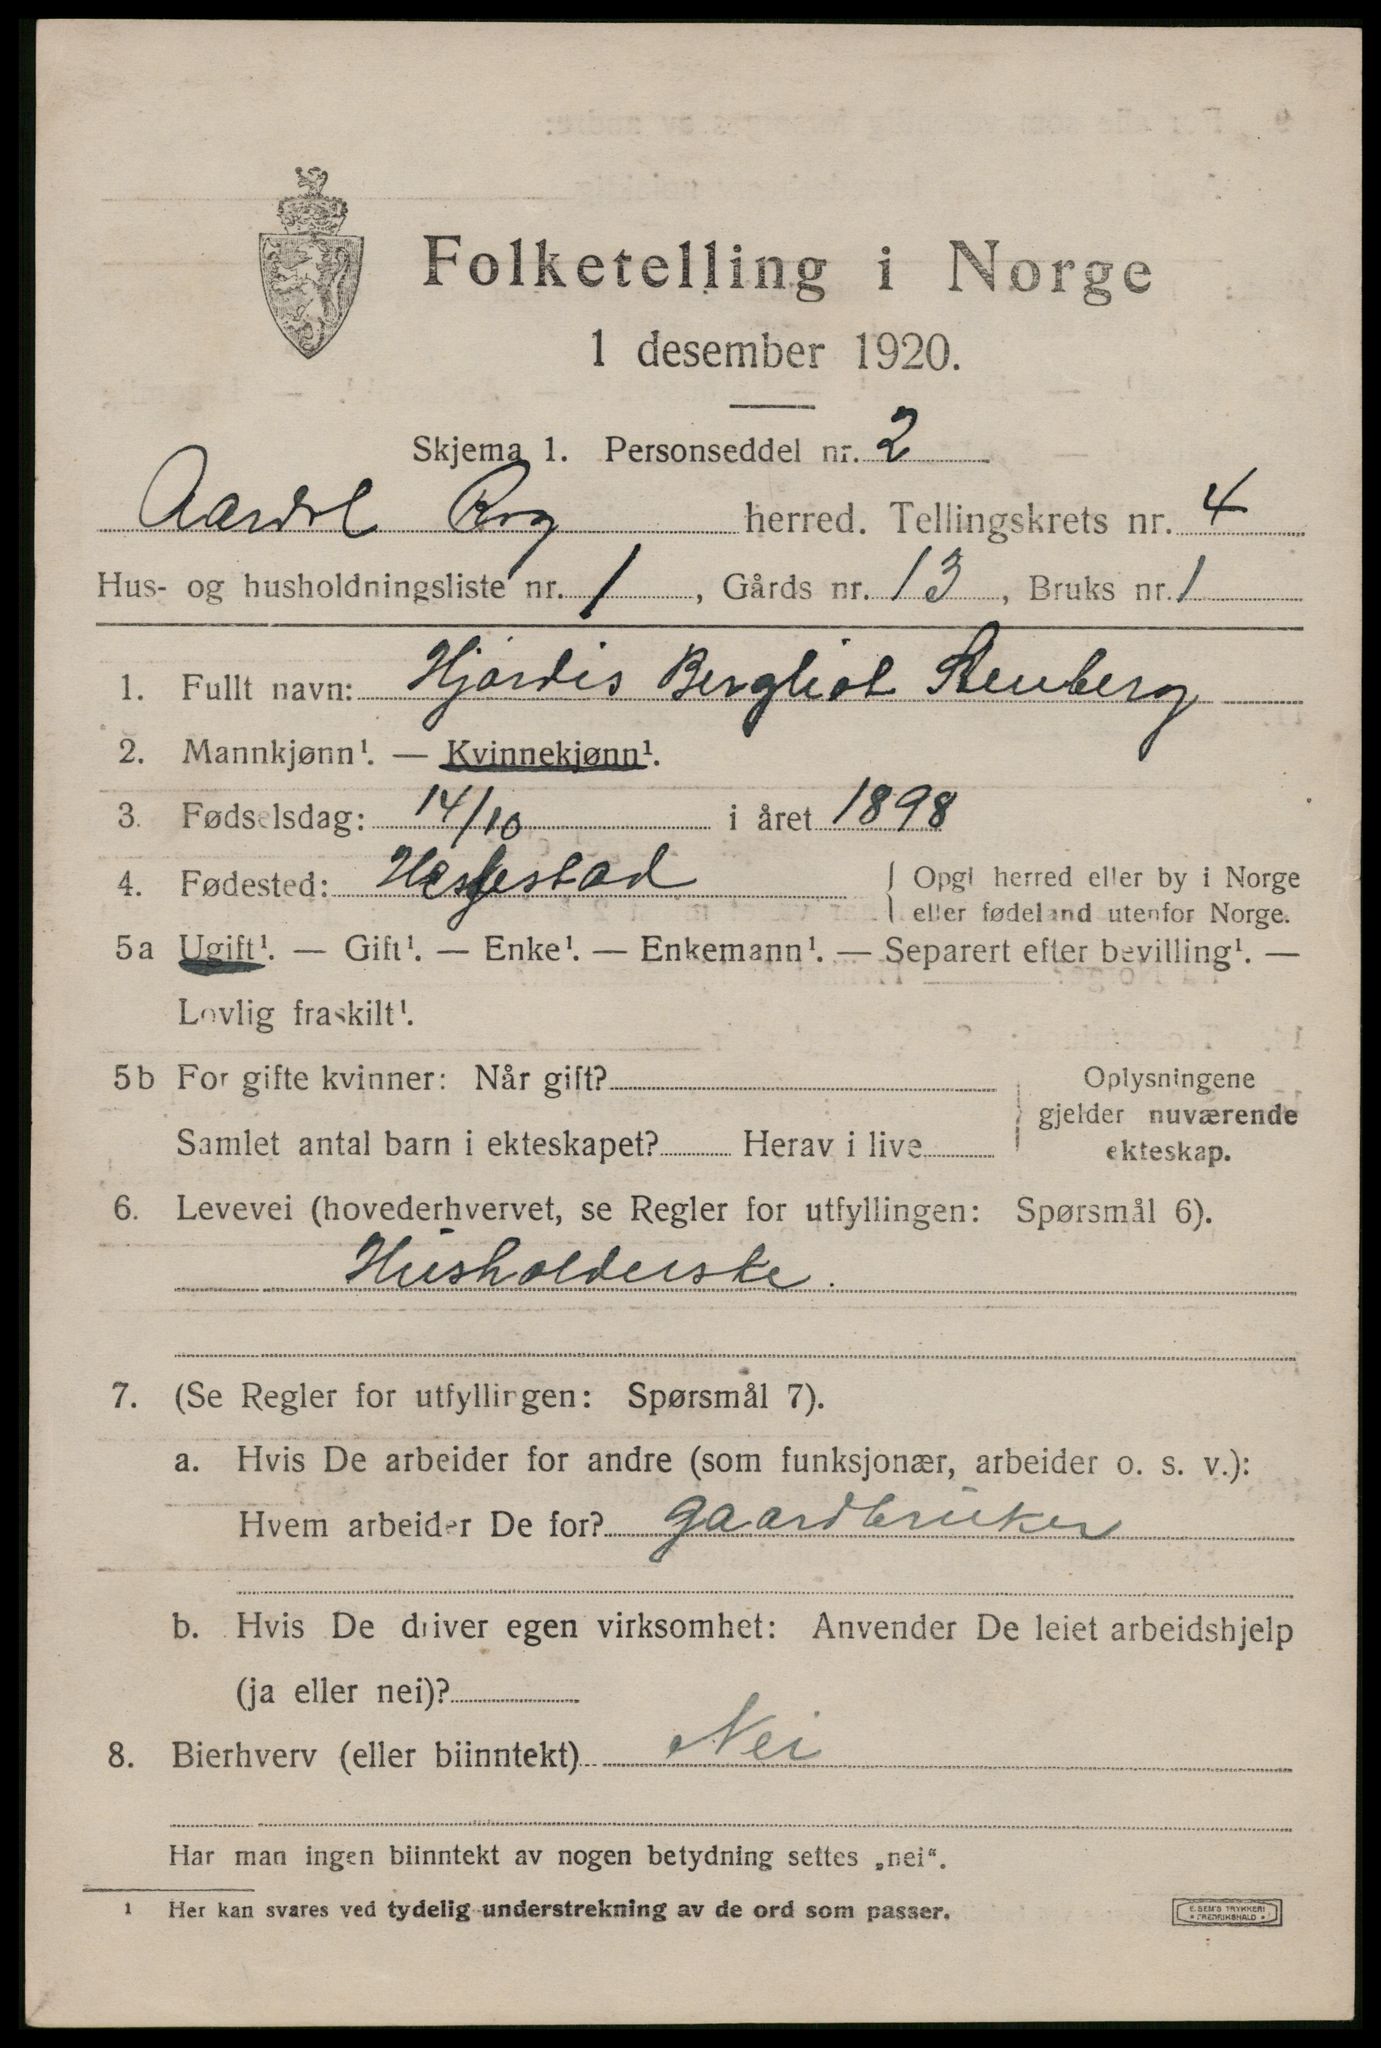 Folketelling i Norge
1 desember 1920.
Skjema 1. Personseddel nr. 2
Aardal Rog herred. Tellingskrets nr. 4
Hus- og husholdningsliste nr. 1, Gårds nr. 13, Bruks nr. 1
1. Fullt navn: Hjördis Bergliot Stenberg
2. Mannkjønn¹. — Kvinnekjønn¹.
3. Fødselsdag: 14/10 i året 1898
4. Fødested: Heskestad { Opgi herred eller by i Norge
eller fødeland utenfor Norge.
5a Ugift¹. — Gift¹. — Enke¹. — Enkemann¹. — Separert efter bevilling¹. —
Lovlig fraskilt¹.
5b For gifte kvinner: Når gift?
Samlet antal barn i ekteskapet? Herav i live
Oplysningene
gjelder nuværende
ekteskap.
6. Levevei (hovederhvervet, se Regler for utfyllingen: Spørsmål 6).
Husholderske.
7. (Se Regler for utfyllingen: Spørsmål 7).
a. Hvis De arbeider for andre (som funksjonær, arbeider o. s. v.):
Hvem arbeider De for? gaardbruker
b. Hvis De driver egen virksomhet: Anvender De leiet arbeidshjelp
(ja eller nei)?
8. Bierhverv (eller biinntekt) Nei
Har man ingen biinntekt av nogen betydning settes „nei“.
¹ Her kan svares ved tydelig understrekning av de ord som passer.
E. SEM'S TRYKKERI
• FREDRIKSHALD •